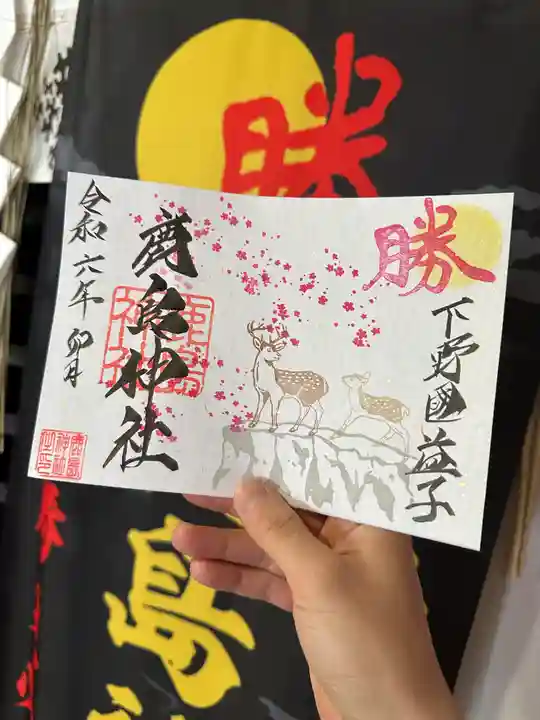 勝
下野國益子
鹿島神社
鹿島神社
令和六年 卯月
勝
島